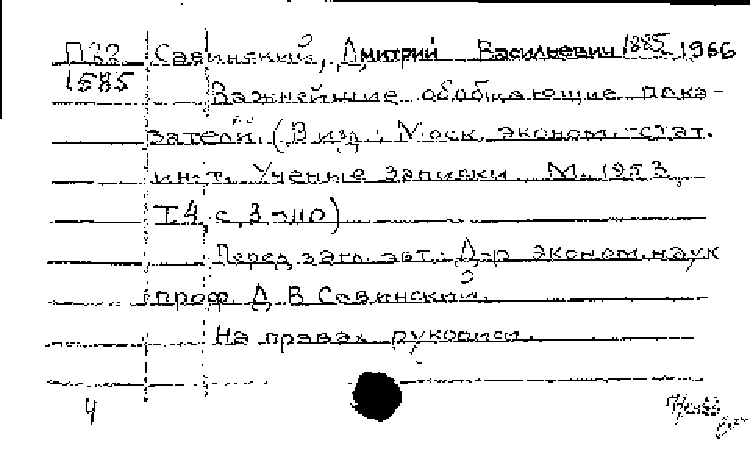 П32 Савинский, Дмитрий Васильевич 1885 1966
1585 Важнейшие обобщающие пока-
затели. (В изд.: Моск. эконом.-стат.
ин-т. Ученые записки. М. 1953,
Т.4, с. 3-110)
Перед загл. авт.: Д-р эконом. наук
проф. Д. В. Савинский.
На правах рукописи.
4